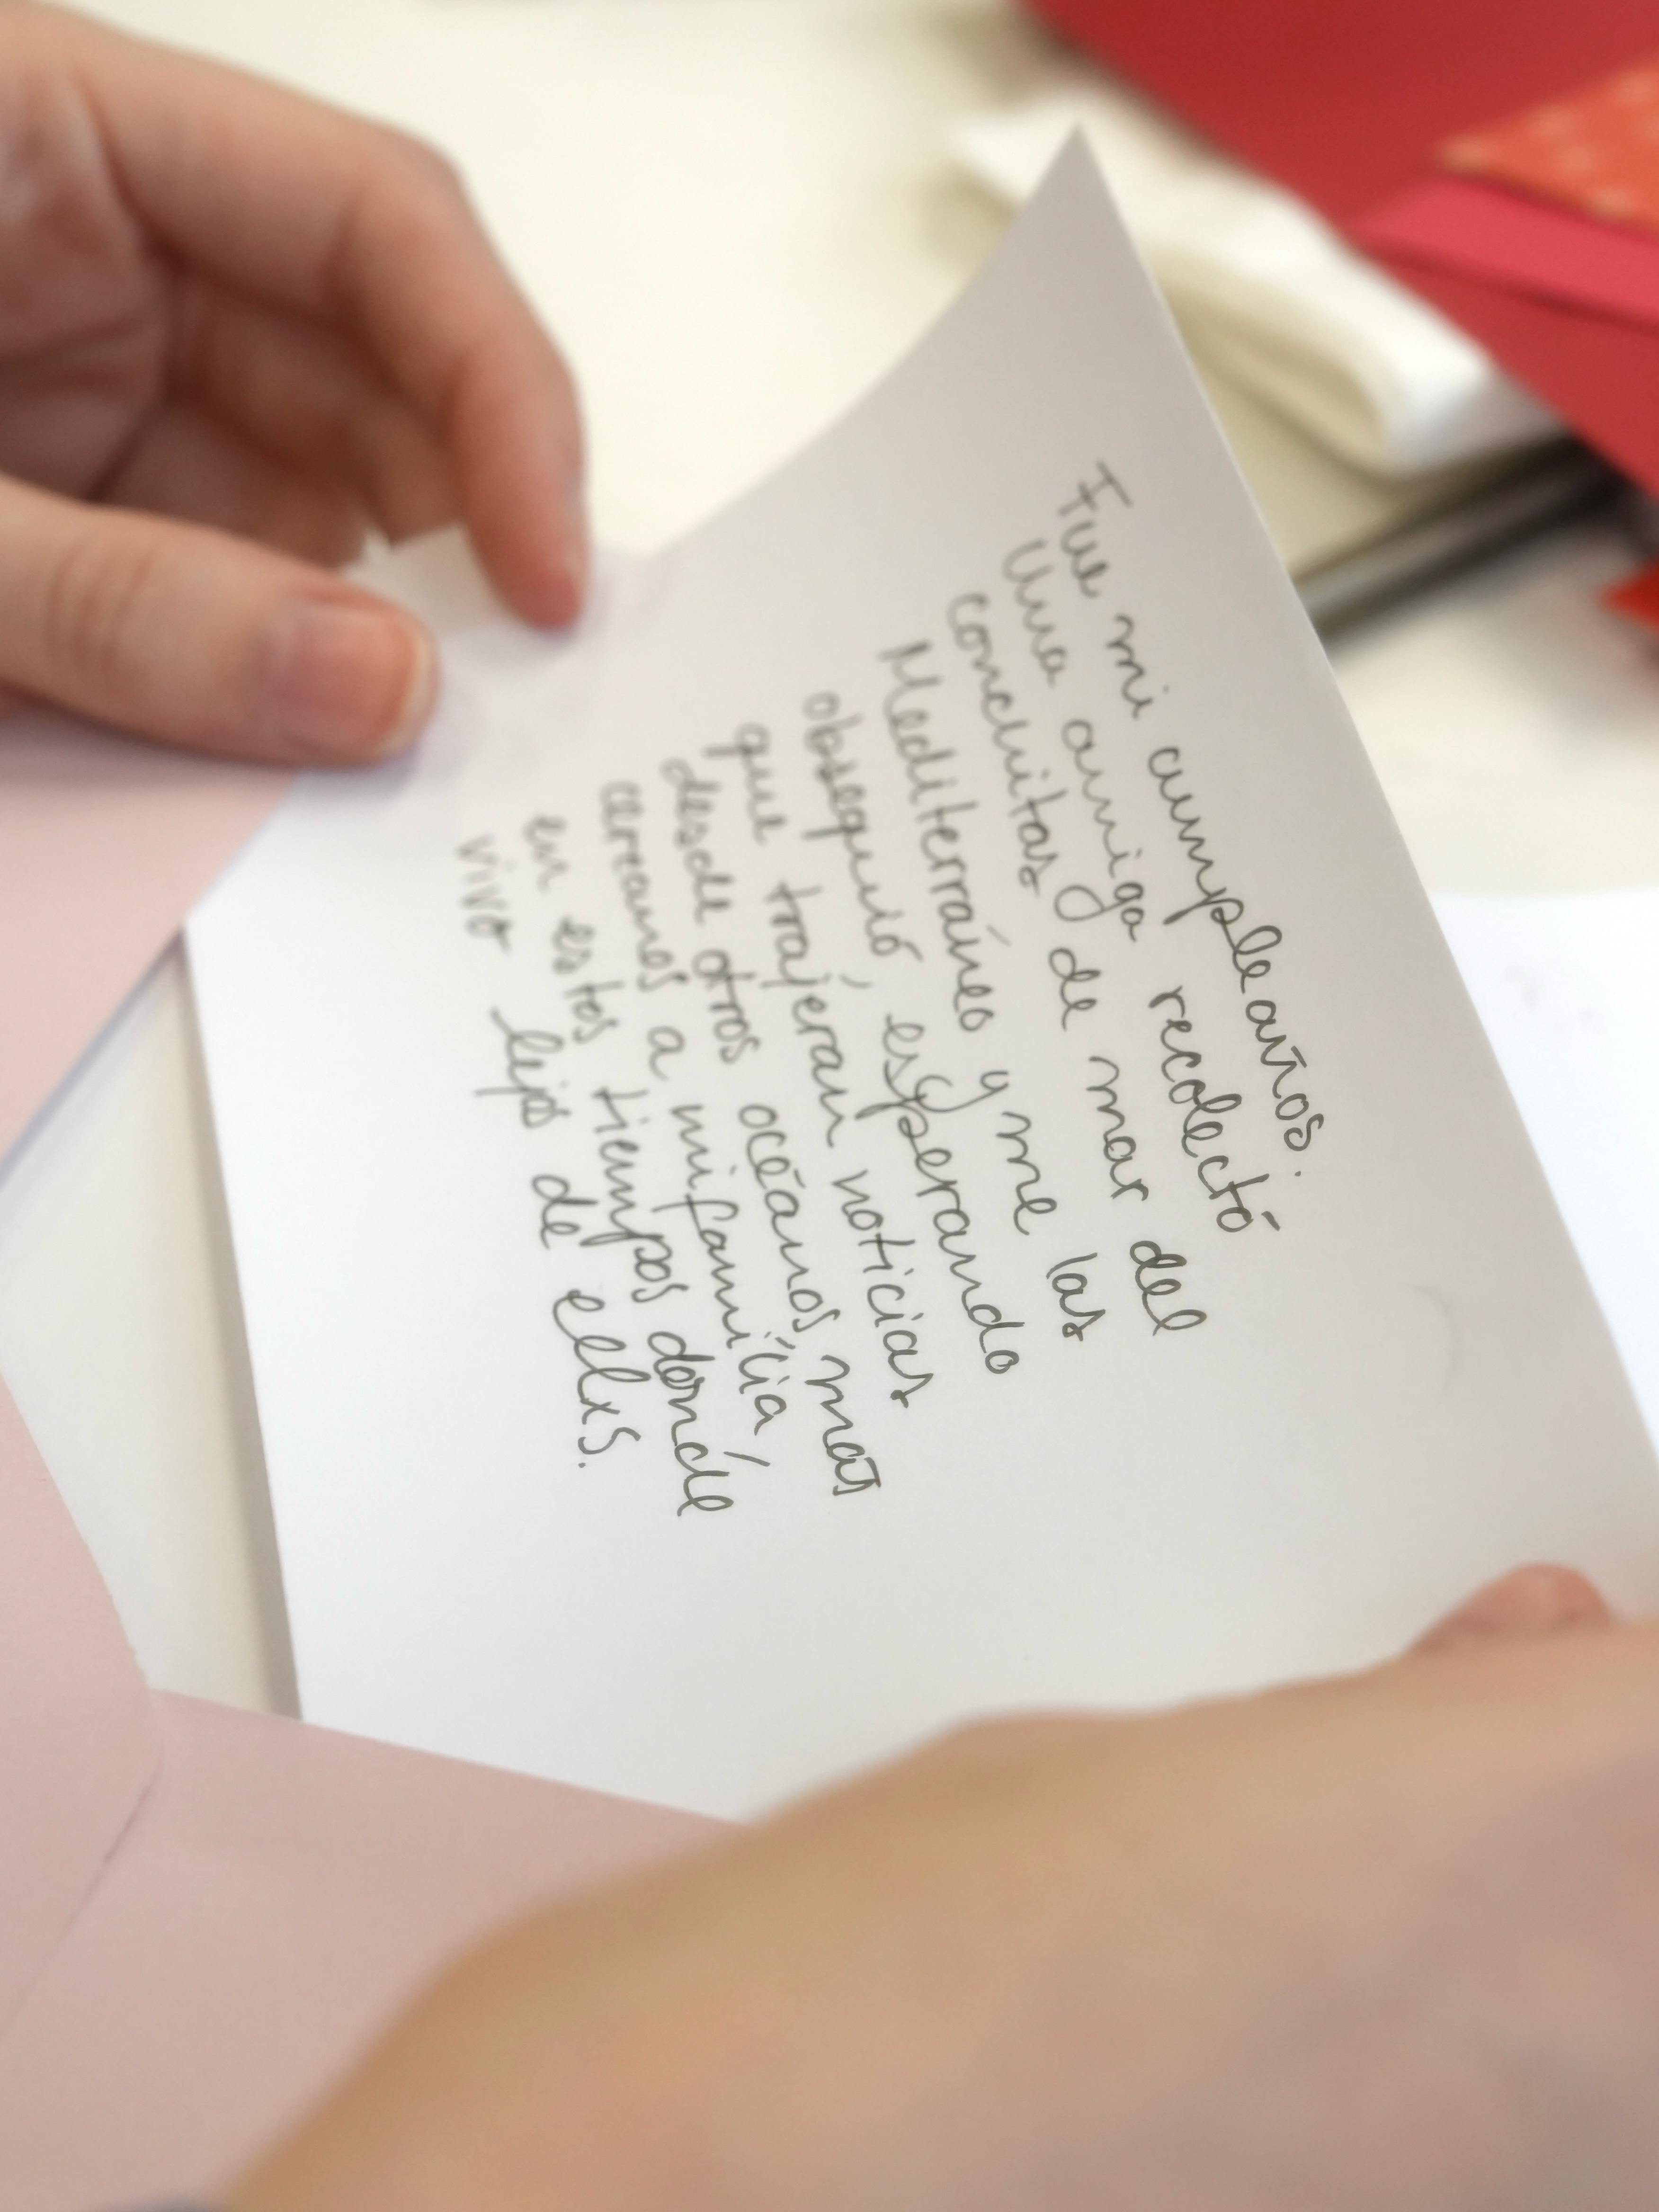 Fue mi cumpleaños.
Una amiga recolectó
conchitas de mar del
Mediterráneo y me las
obsequió, esperando
que trajeran noticias
desde otros océanos más
cercanos a mi familia,
en estos tiempos donde
vivo lejos de ellxs.